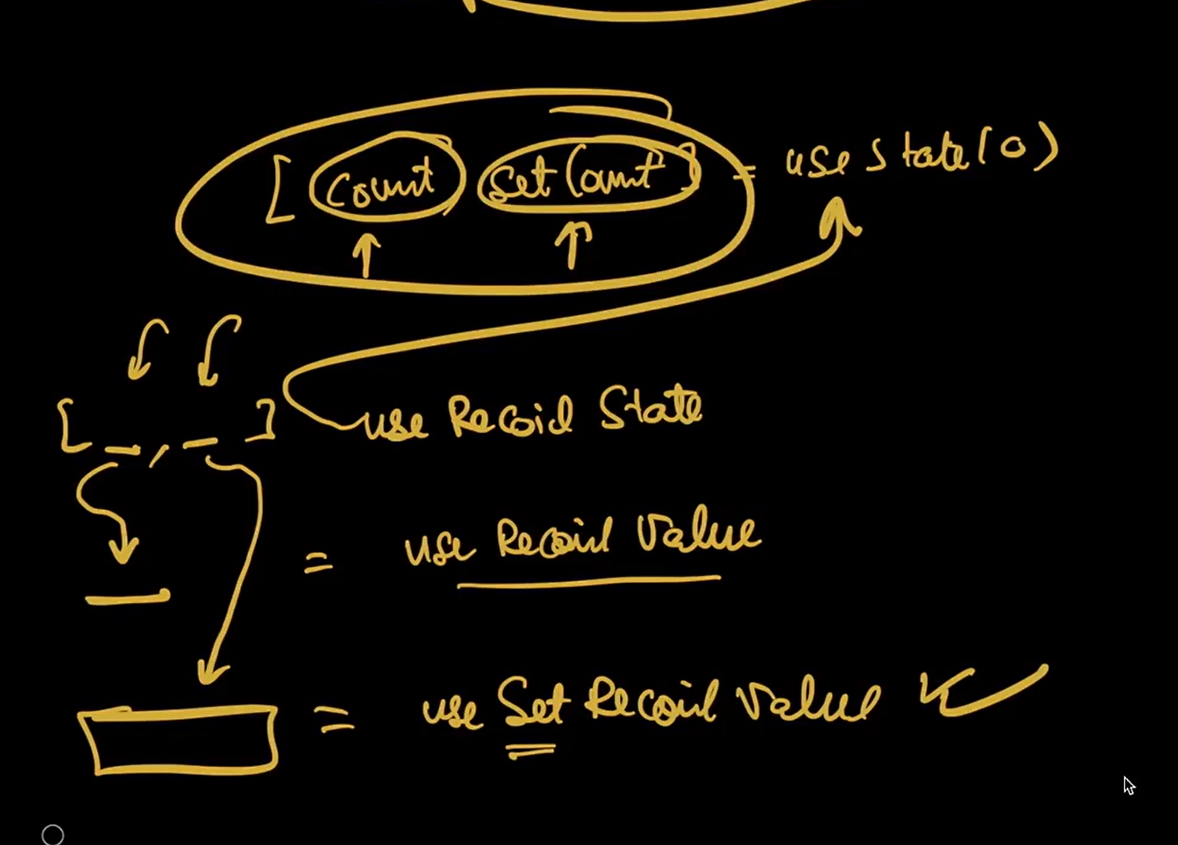 [ count setCount ] = useState(0)
[ _, _ ] use Recoil State
_ = use Recoil Value
= use Set Recoil Value